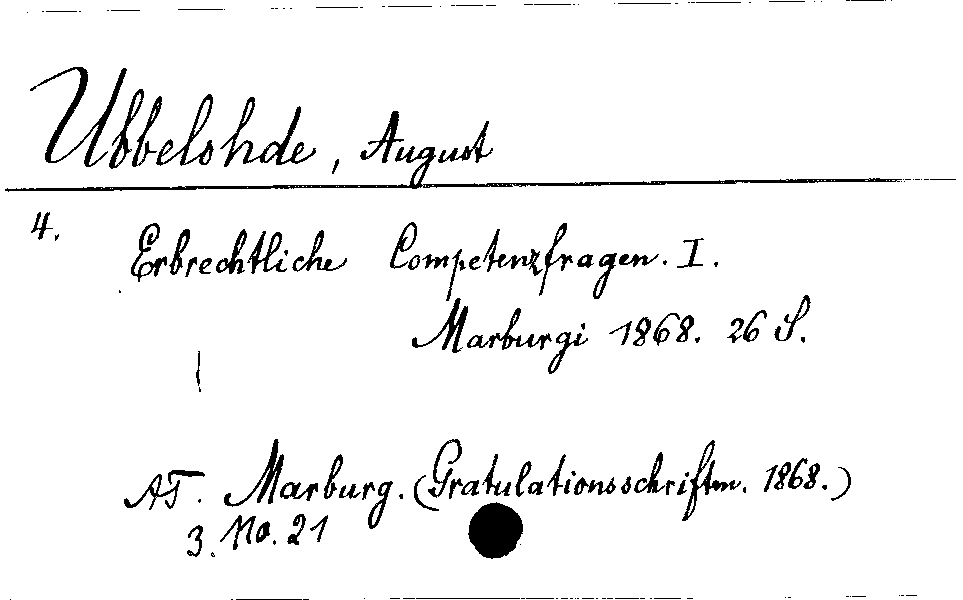 Ubbelohde, August
4.
Erbrechtliche Competenzfragen. I.
Marburgi 1868. 26 S.
AT. Marburg. (Gratulationsschriften. 1868.)
3. No. 21